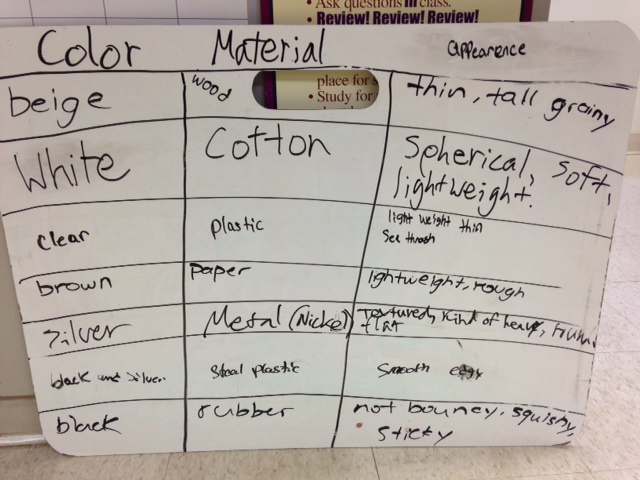 • Ask questions in class.
• Review! Review! Review!
Color Material appearence
place for
• Study for
beige wood thin, tall grainy
White Cotton Spherical, soft,
lightweight.
clear plastic light weight thin
See
brown paper lightweight, rough
Silver Metal (Nickel) Textured, Kind of heavy,
flat
black and silver Steal plastic Smooth
black rubber not bouncy, squishy,
sticky